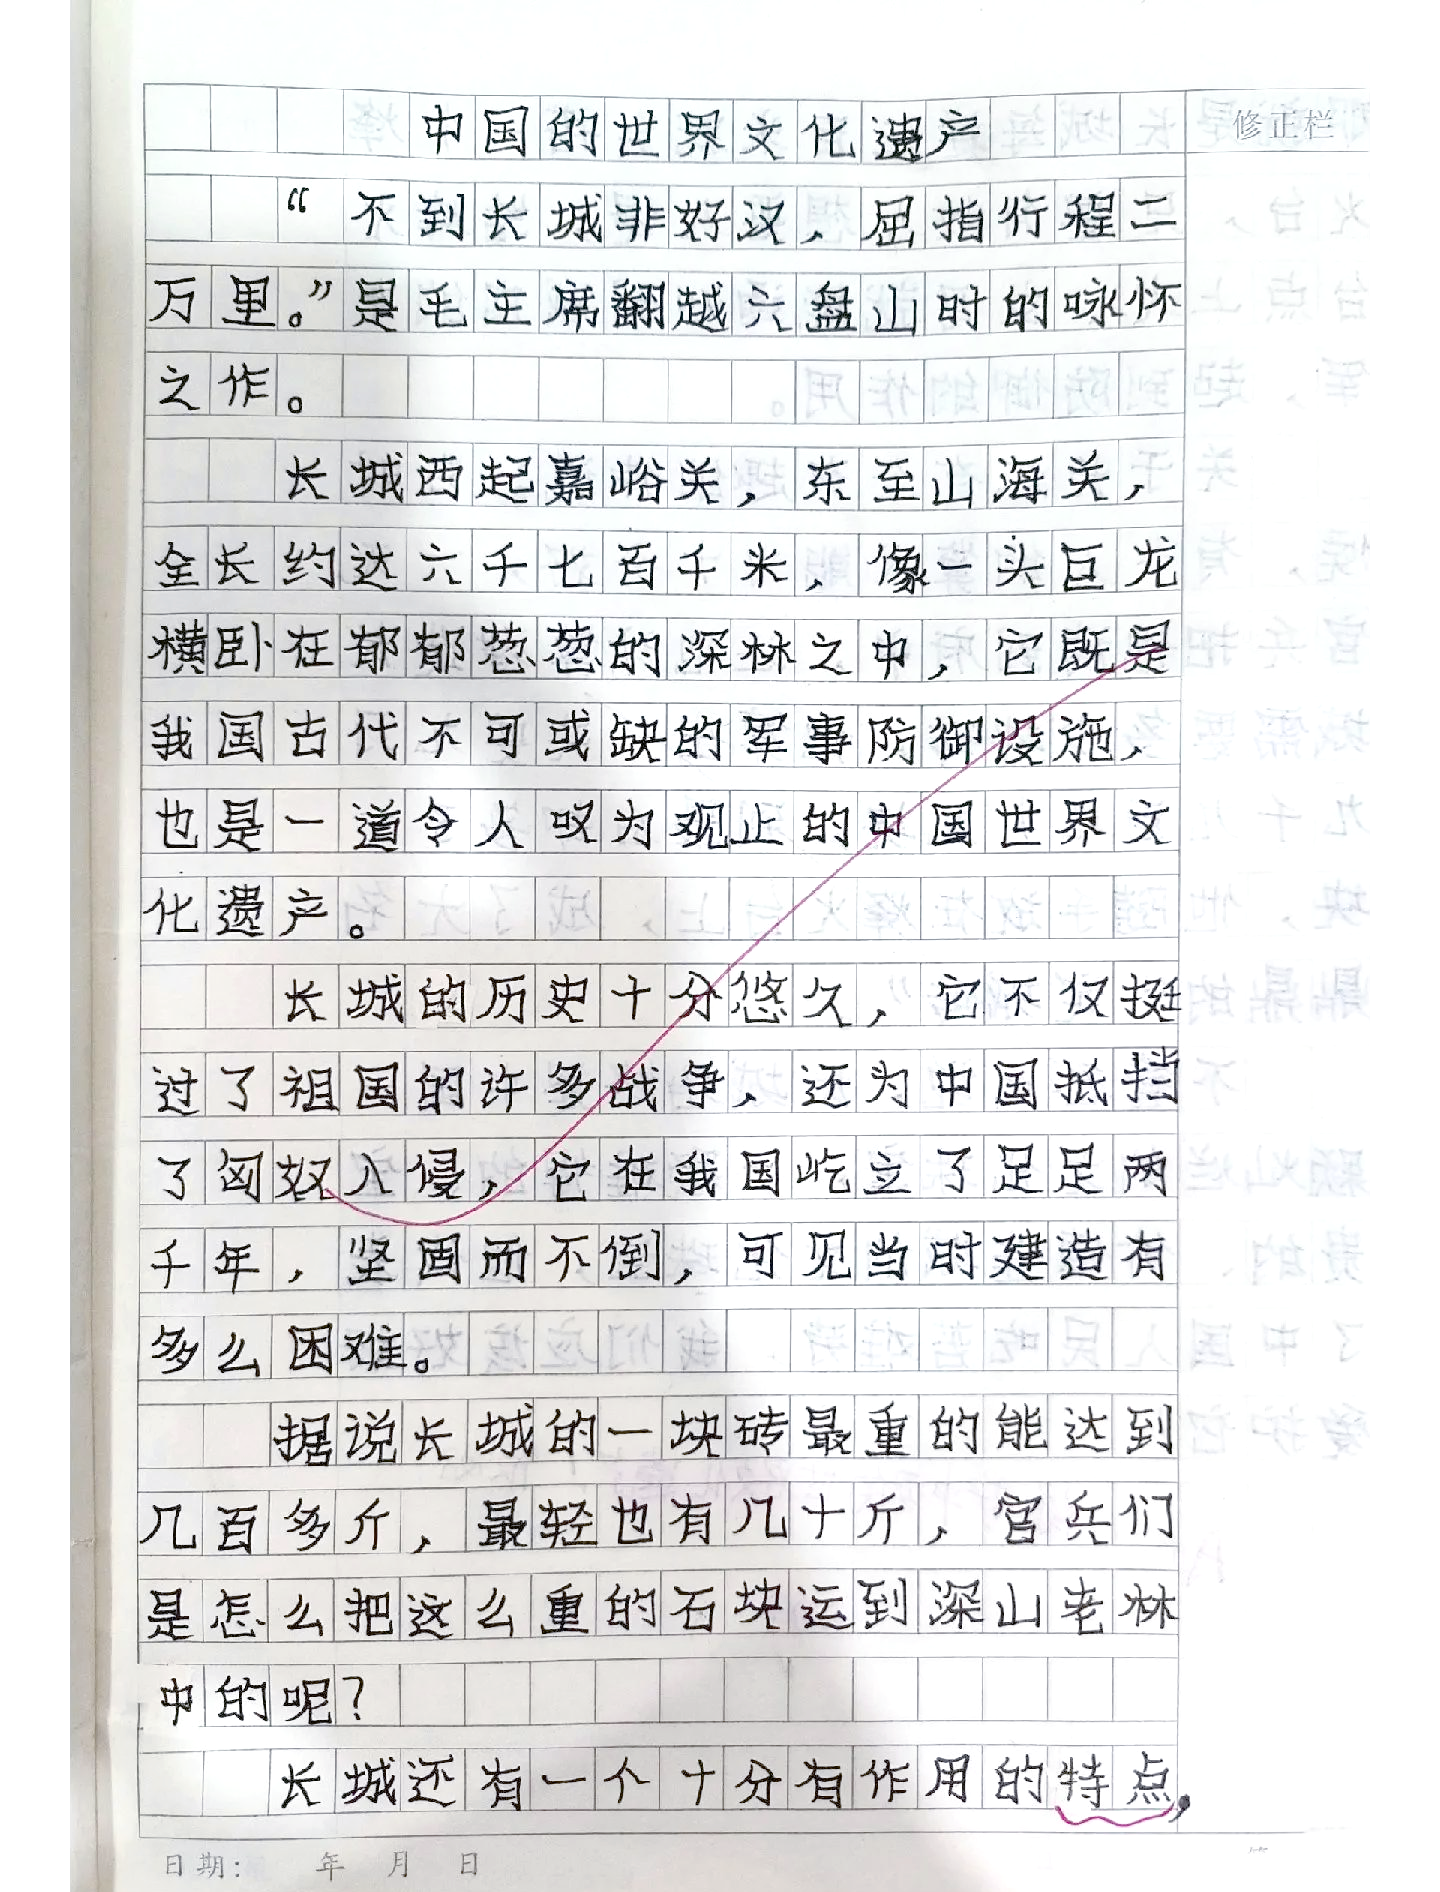 中国的世界文化遗产
修正栏
“不到长城非好汉，屈指行程二
万里。”是毛主席翻越六盘山时的咏怀
之作。
长城西起嘉峪关，东至山海关，
全长约达六千七百千米，像一头巨龙
横卧在郁郁葱葱的深林之中，它既是
我国古代不可或缺的军事防御设施，
也是一道令人叹为观止的中国世界文
化遗产。
长城的历史十分悠久，它不仅挺
过了祖国的许多战争，还为中国抵挡
了匈奴入侵，它在我国屹立了足足两
千年，坚固而不倒，可见当时建造有
多么困难。
据说长城的一块砖最重的能达到
几百多斤，最轻也有几十斤，官兵们
是怎么把这么重的石块运到深山老林
中的呢？
长城还有一个十分有作用的特点，
日期： 年 月 日